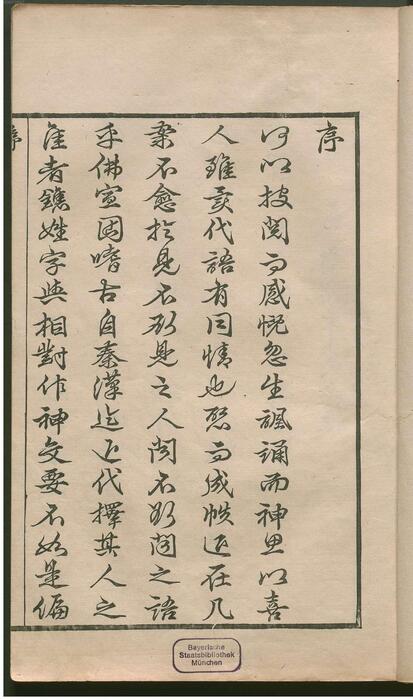 序
可以披閱而感慨忽生諷誦而神思以喜
人雖異代語有同情也聚而成帙近在几
案不愈於見不到見之人聞不到聞之語
乎佛宣固嗜古自秦漢迄近代擇其人之
佳者鐫姓字與相對作神交要不如是徧
序
Bayerische
Staatsbibliothek
München